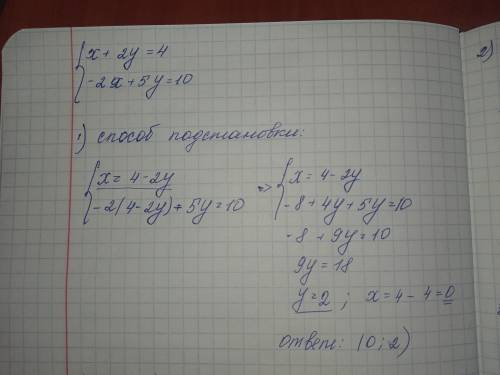 {x + 2y = 4
-2x + 5y = 10
1) способ подстановки:
{x = 4 - 2y
-2(4 - 2y) + 5y = 10
=> {x = 4 - 2y
-8 + 4y + 5y = 10
-8 + 9y = 10
9y = 18
y = 2 ; x = 4 - 4 = 0
ответ: (0 ; 2)
2)